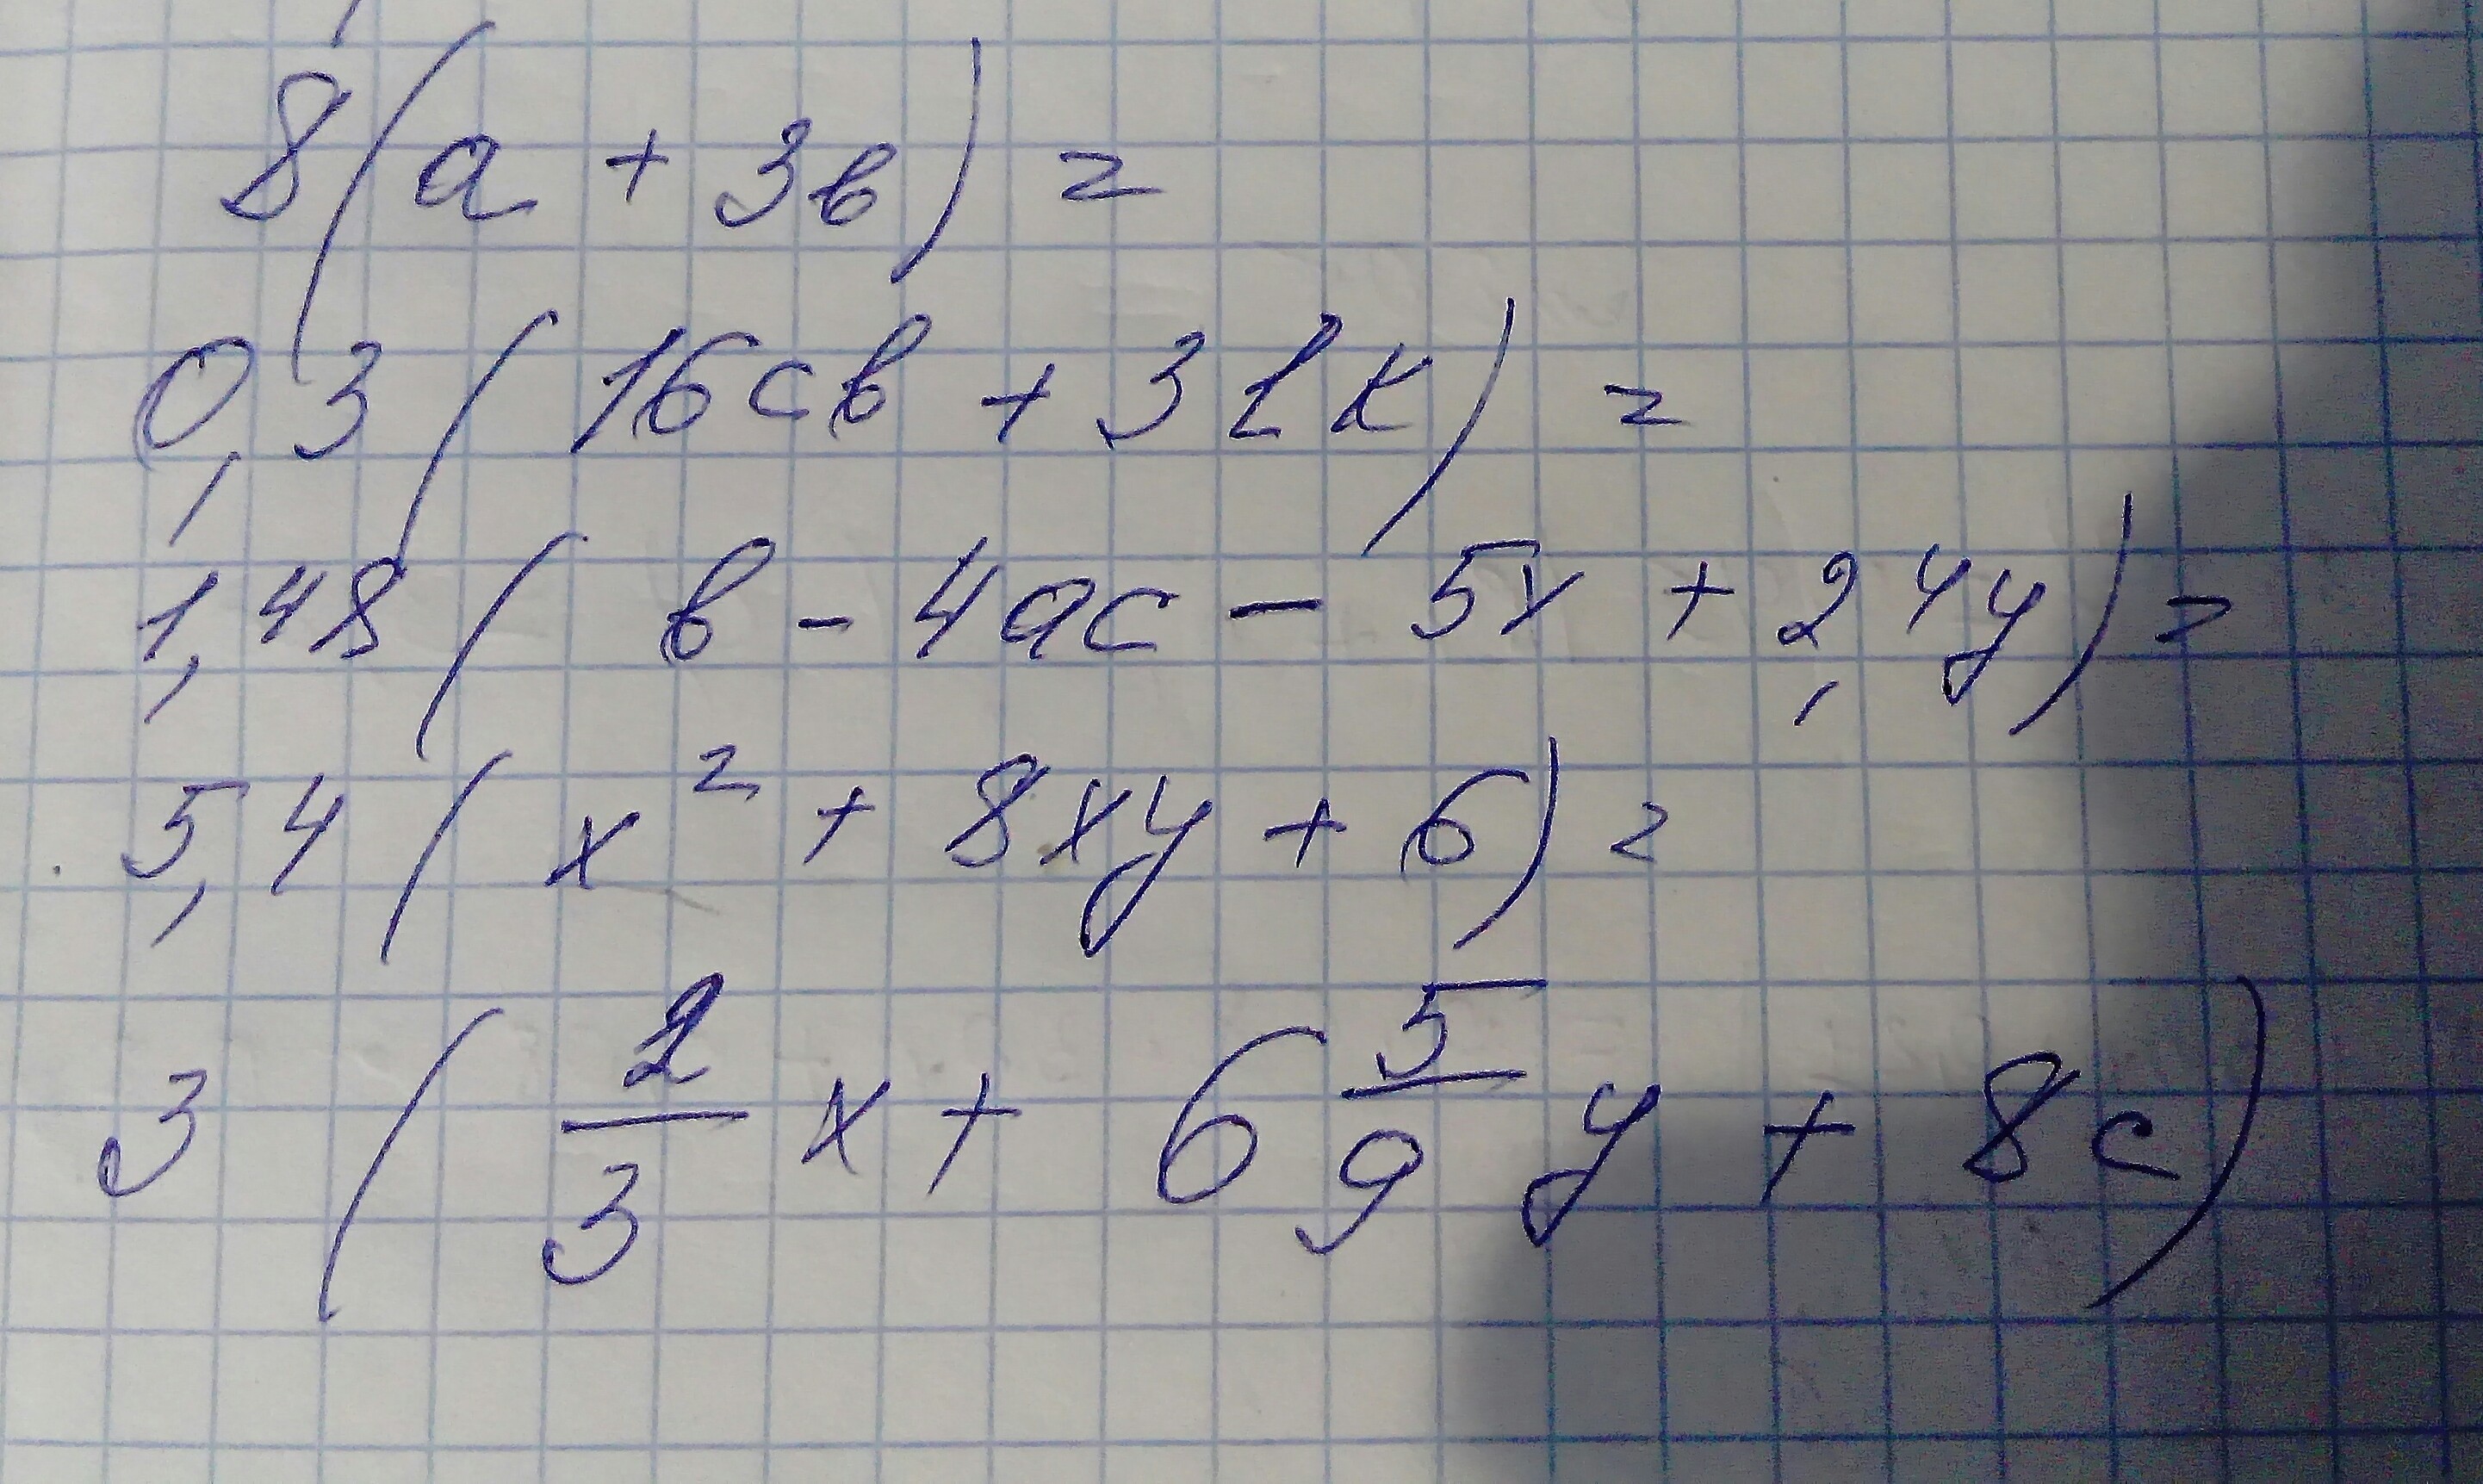 8(a + 3в) =
0,3(16cв + 3lk) =
1,48(в - 4ac - 5x + 2,4y) =
5,4(x² + 8xy + 6) =
3(2/3 x + 6 5/9 y + 8c)